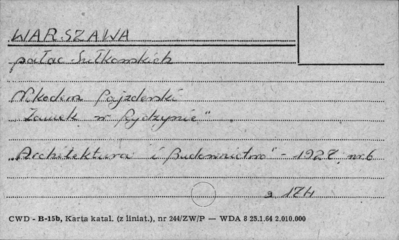 WARSZAWA
pałac Sułkowskich
Nikodem Pajzderski
"Zamek w Rydzynie".
"Architektura i Budownictwo" - 1927 nr 6
174
CWD - B-15b, Karta katal. (z liniat.), nr 244/ZW/P — WDA 8 23.1.64 2.010.000